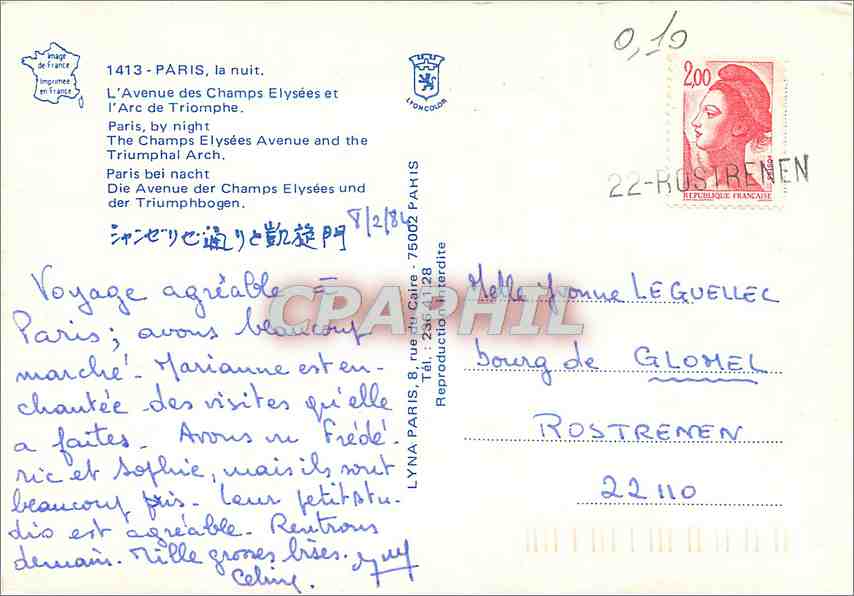 Image
de France
Imprimée
en France
1413 - PARIS, la nuit.
L'Avenue des Champs Elysées et
l'Arc de Triomphe.
Paris, by night
The Champs Elysées Avenue and the
Triumphal Arch.
Paris bei nacht
Die Avenue der Champs Elysées und
der Triumphbogen.
シャンゼリゼ通りと凱旋門
LYONCOLOR
0,10
2,00
REPUBLIQUE FRANÇAISE
22-ROSTRENEN
8/2/84
Voyage agréable =
Paris; avons beaucoup
marché. Marianne est en-
chantée des visites qu'elle
a faites. Avons vu Frédé-
ric et Sophie, mais ils sont
beaucoup pris. Leur petit stu-
dio est agréable. Rentrons
demain. Mille grosses bises.
LYNA PARIS, 8, rue du Caire - 75002 PARIS
Tél. : 236 41 28
Reproduction interdite
CPAPHIL
Melle Yvonne LEGUELLEC
bourg de GLOMEL
ROSTRENEN
22110